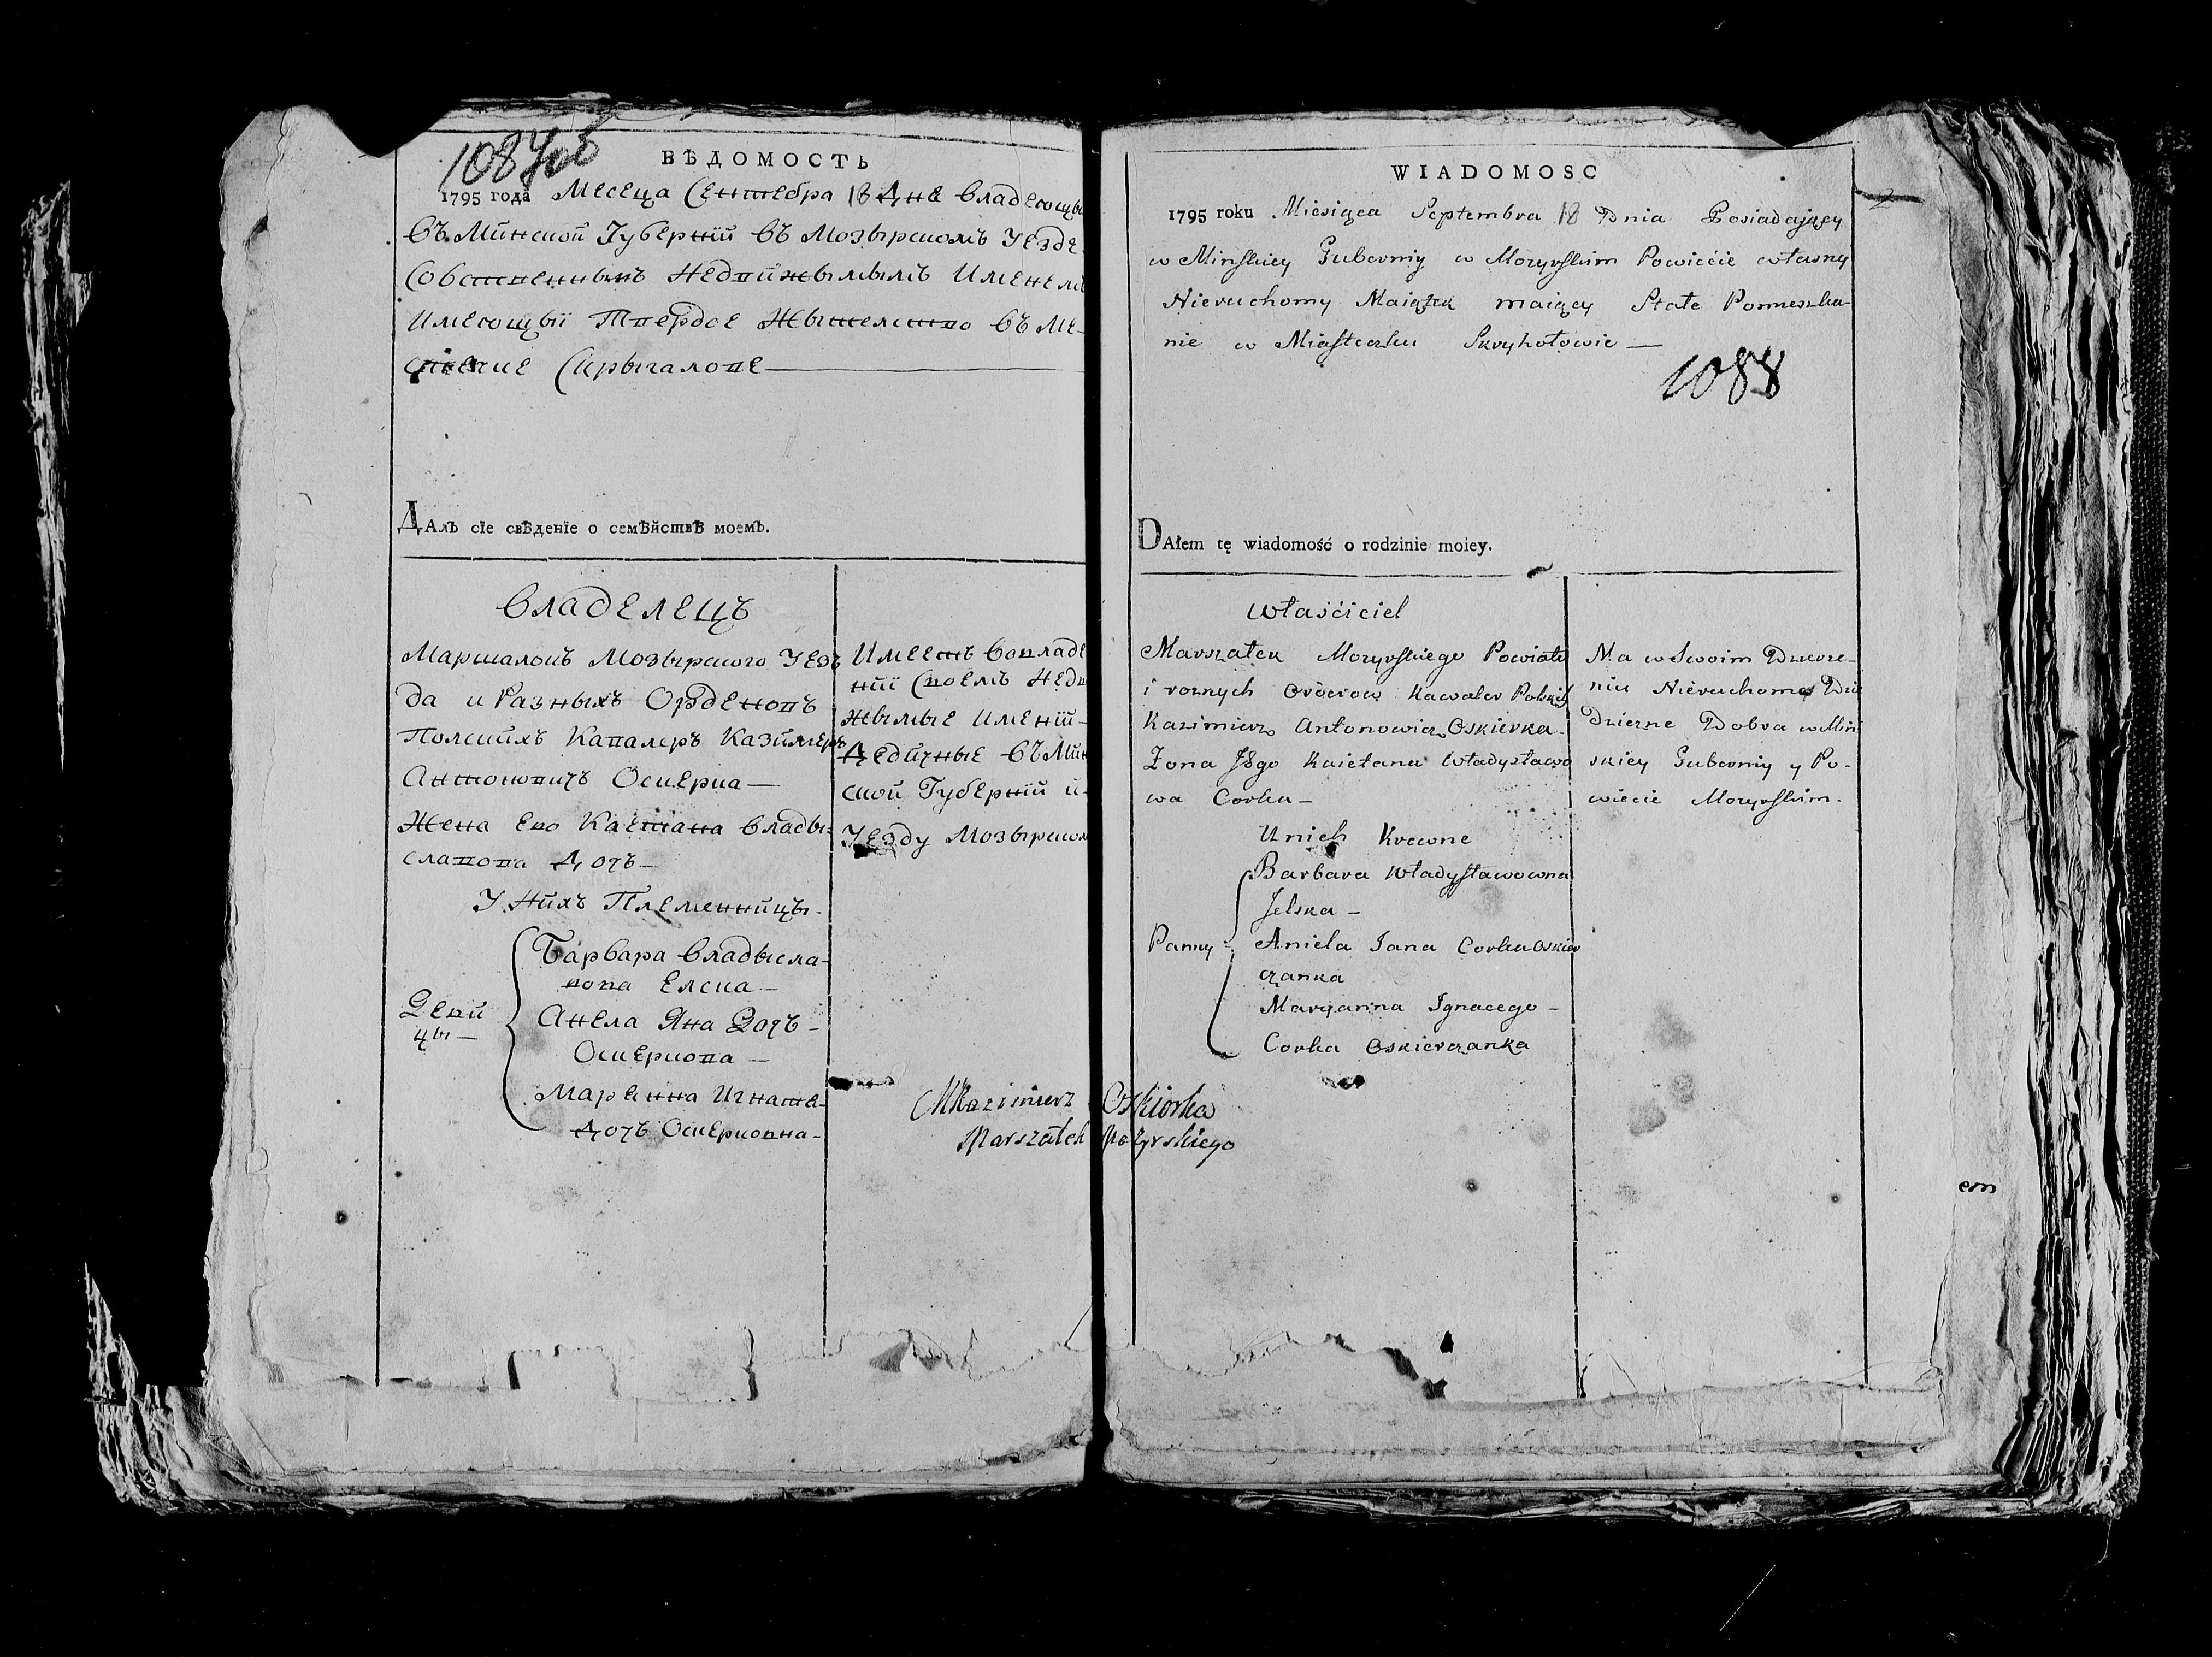 1087об
ВѢДОМОСТЬ
1795 года Месеца Сентебра 18 Дне владеющы
въ Минской Губерніи въ Мозырскомъ Уезде
Собственнымъ Недвижымымъ Именемъ
Имеющыи Твердое Жытелство въ Ме-
стечке Скрыгалове
Далъ сіе свѣденіе о семѣйствѣ моемъ.
Владелецъ
Маршалокъ Мозырского Уез-
да и Разныхъ Орденовъ
Полскихъ Кавалеръ Казимеръ
Антоновичъ Оскерка
Жена Ево Каетана Влады-
славова Дочь
У Нихъ Племенницы
Девицы
Барбара Владысла-
вова Елска
Анела Яна Дочъ
Оскеркова
Мареанна Игнате-
Дочъ Оскерковна
Имеетъ во владе
нии Своемъ Недви
жымые Имении
Дедичные въ Мин
ской Губернии и
Уезду Мозырском
WIADOMOSC
1795 roku Miesiąca Septembra 18 Dnia Posiadający
w Minskiey Gubernij w Mozyrskim Powiećie własny
Nieruchomy Maiątek maiący Stałe Pomieszka-
nie w Miasteczku Skryhołowie
1088
DAłem tę wiadomość o rodzinie moiey.
właśćiciel
Marszałek Mozyrskiego Powiatu
i roznych Orderow Kawaler Polskich
Kazimierz Antonowicz Oskierka
Żona Jego Kaietana Władysławo
wa Corka
U nich Krewne
Panny
Barbara Władysławowna
Jelska
Aniela Jana Corka Oskier
czanka
Maryanna Ignacego
Corka Oskierczanka
Ma w Swoim Dzierże-
niu Nieruchome Dzie
Dziczne Dobra w Min
skiey Gubernij y Po-
wiecie Mozyrskim
Kazimierz Oskierka
Marszałek Mozyrskiego
em